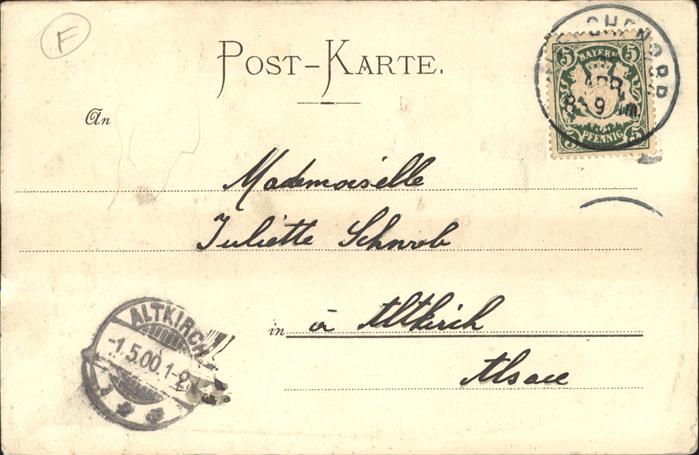 F
POST-KARTE.
5 BAYERN 5
PFENNIG
APR
8-9 Am.
An
Mademoiselle
Juliette Schwob
in à Altkirch
Alsace
ALTKIRCH
-1.5.00.1-2